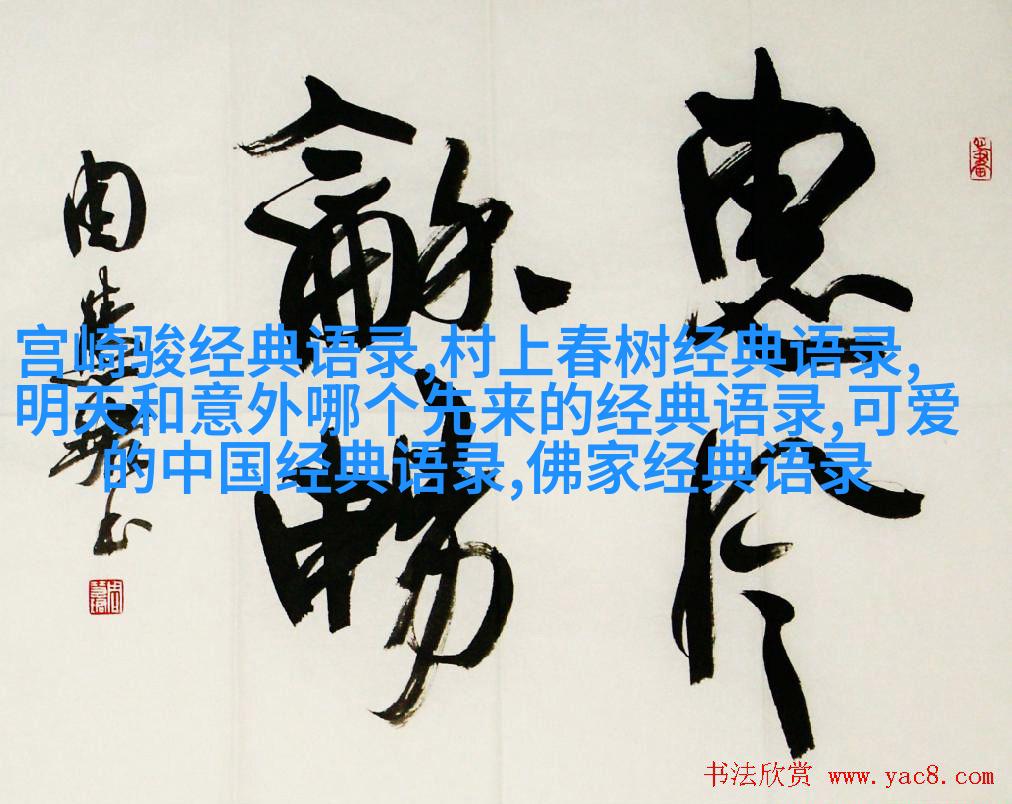 宫崎骏经典语录,村上春树经典语录,
明天和意外哪个先来的经典语录,可爱
的中国经典语录,佛家经典语录
惠风
龢畅
书法欣赏 www.yac8.com